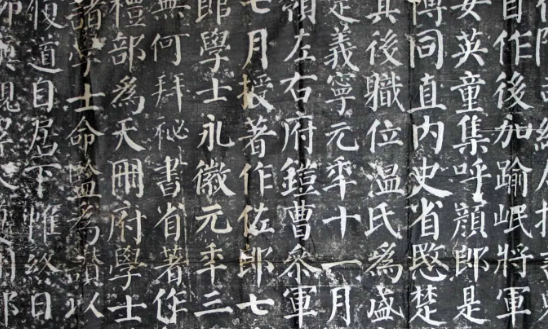 自作後加踰岷將軍
安英童集呼顏郎是
博同直内史省愍楚
其後職位温氏為盛
定義寧元年十一月
領左右府鎧曹參軍
七月授著作佐郎七
郎學士永徽元年三
無何拜祕書省著作
禮部為天冊府學士
諸學士命監為讚以
後道自居下帷終日